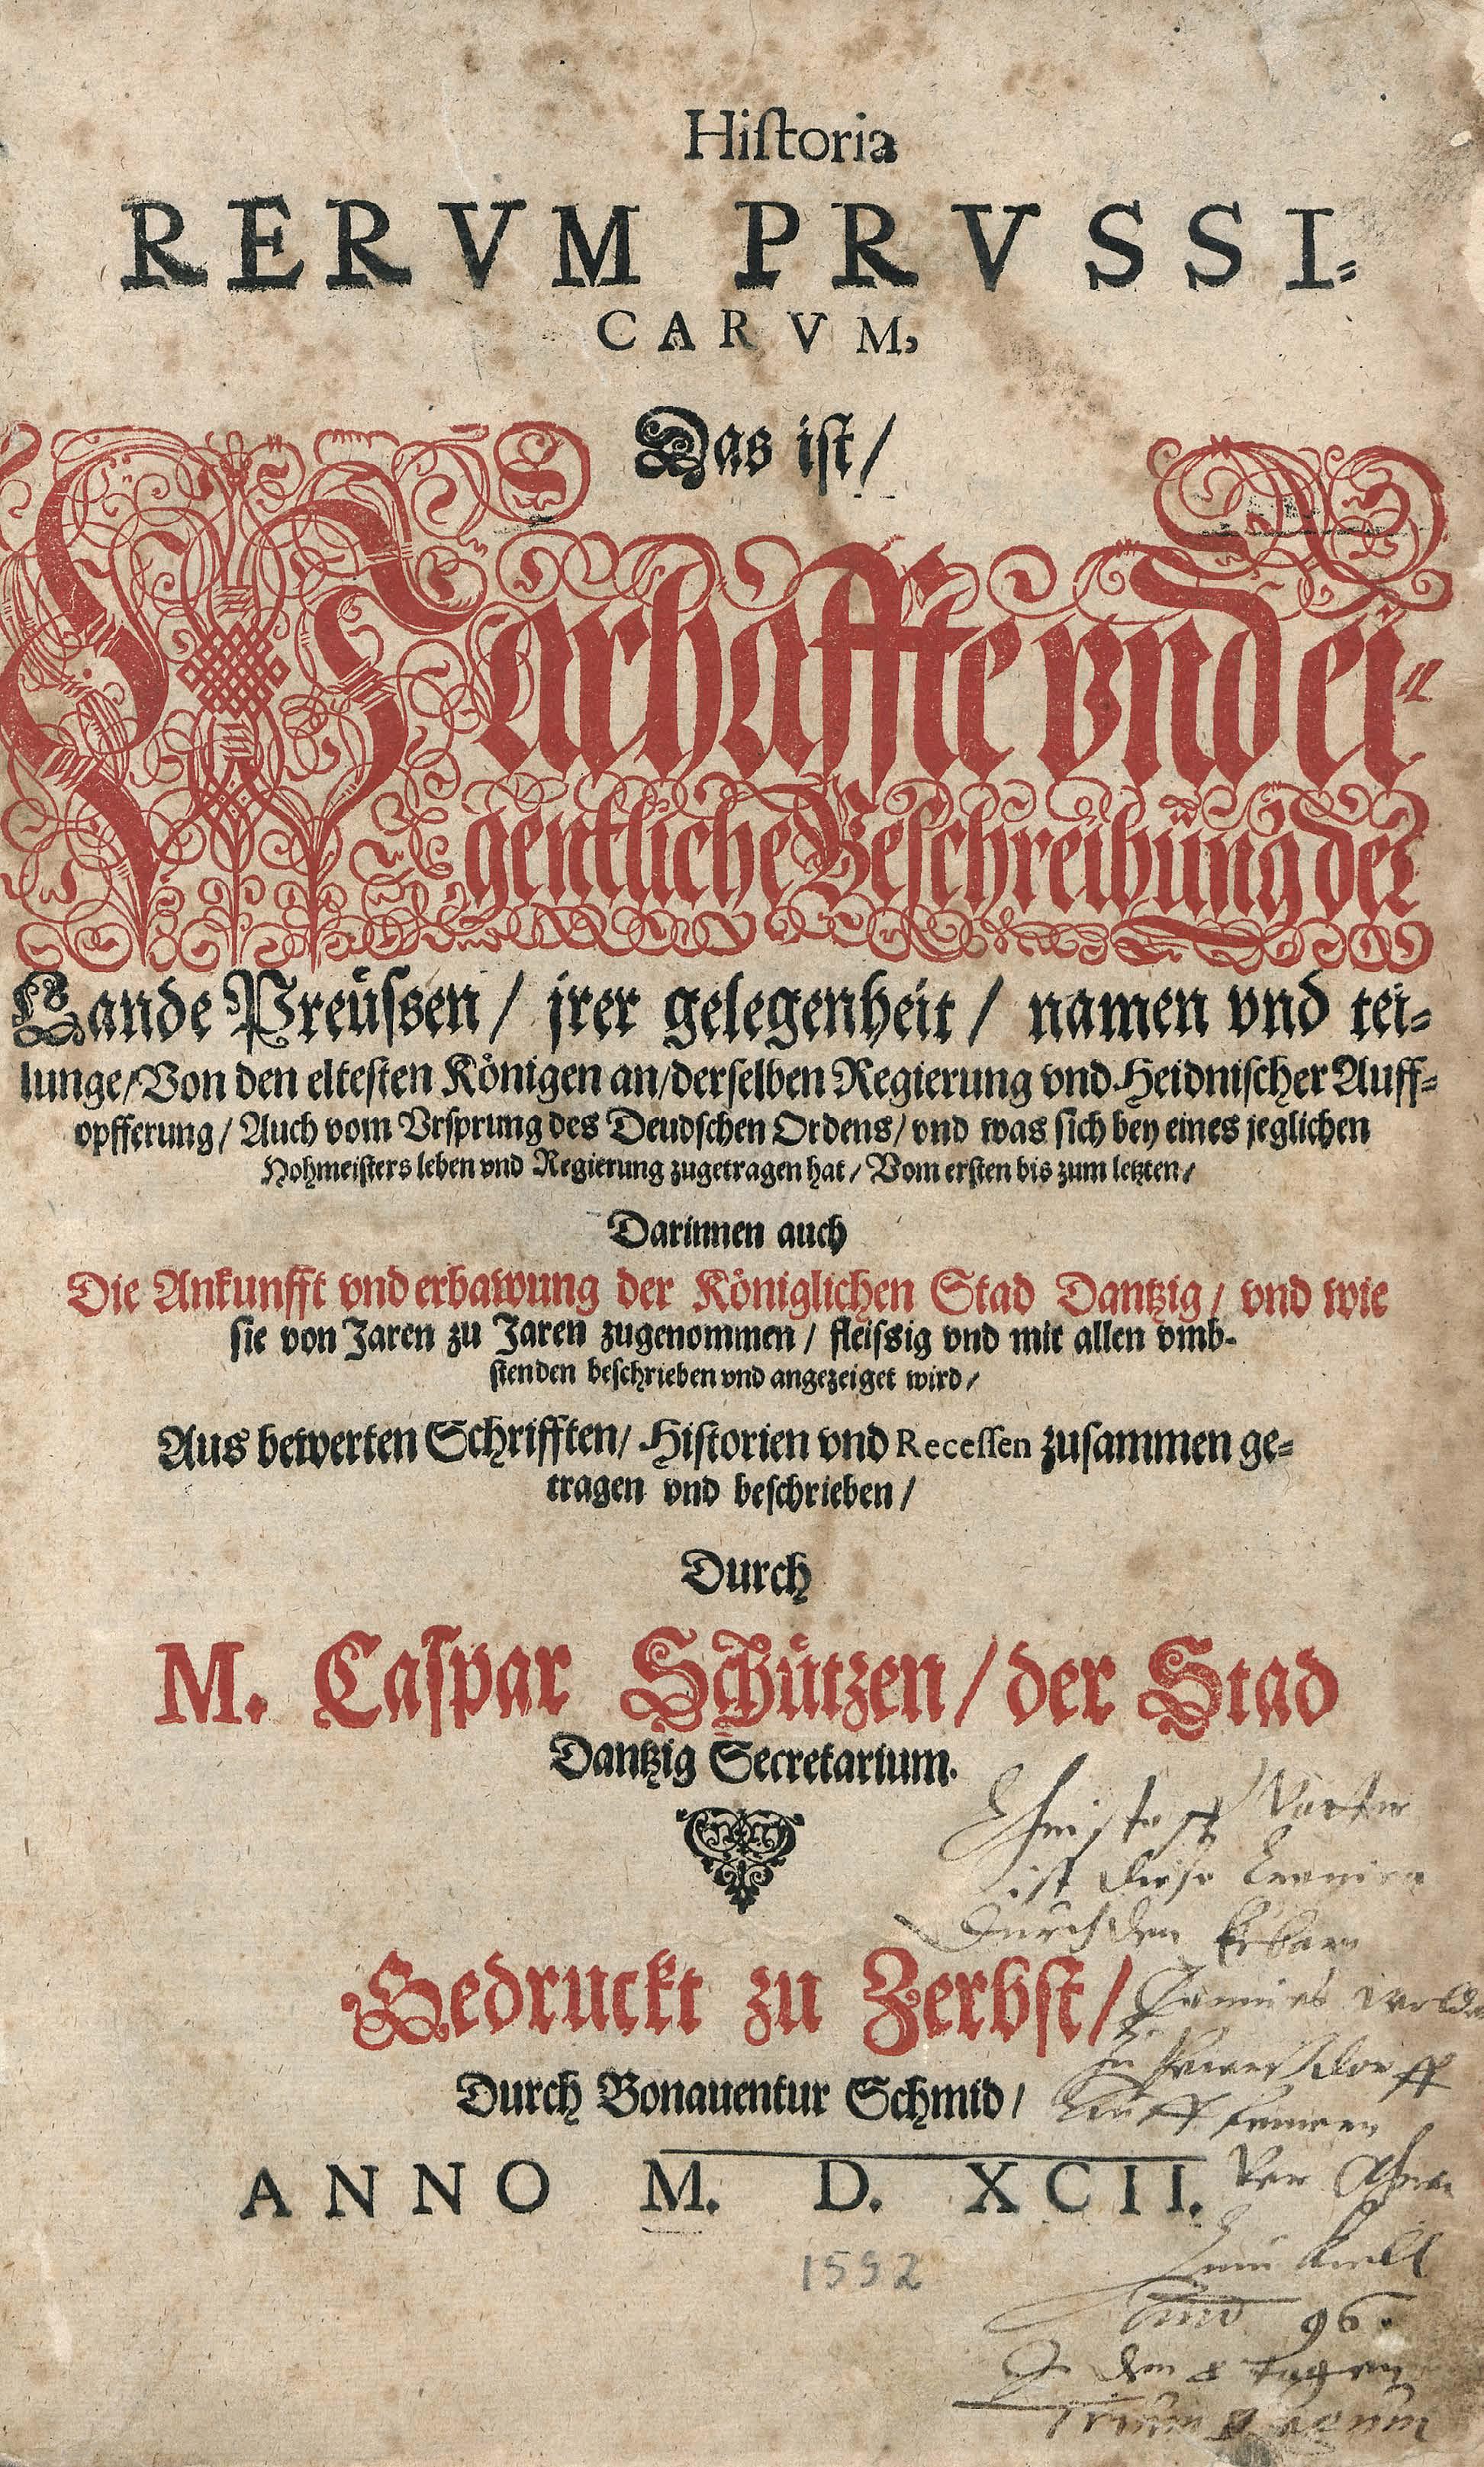 Hiſtoria
RERVM PRVSSI⸗
CARVM,
Das iſt/
Warhaffte vnd ei⸗
gentliche Beſchreibung der
Lande Preuſsen/ jrer gelegenheit/ namen vnd tei⸗
lunge/ Von den elteſten Koͤnigen an/ derſelben Regierung vnd Heidniſcher Auff⸗
opfferung/ Auch vom Vrſprung des Deudſchen Ordens/ vnd was ſich bey eines jeglichen
Hohmeiſters leben vnd Regierung zugetragen hat/ Vom erſten bis zum letzten/
Darinnen auch
Die Ankunfft vnd erbawung der Koͤniglichen Stad Dantzig/ vnd wie
ſie von Jaren zu Jaren zugenommen/ fleiſsig vnd mit allen vmb⸗
ſtenden beſchrieben vnd angezeiget wird/
Aus bewerten Schrifften/ Hiſtorien vnd Receſſen zuſammen ge⸗
tragen vnd beſchrieben/
Durch
M. Caſpar Schuͤtzen/ der Stad
Dantzig Secretarium.
Chriſtoff
iſt dieſe
durch den
Gedruckt zu Zerbſt/
Durch Bonauentur Schmid/
ANNO M. D. XCII.
1592
96.
den 8 tag